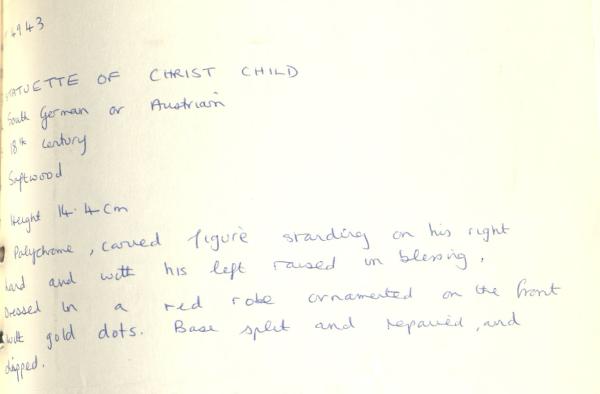 4943
STATUETTE OF CHRIST CHILD
South German or Austrian
18th century
Softwood
Height 14.4cm
Polychrome, carved figure standing on his right
hand and with his left raised in blessing.
Dressed in a red robe ornamented on the front
with gold dots. Base split and repaired, and
chipped.